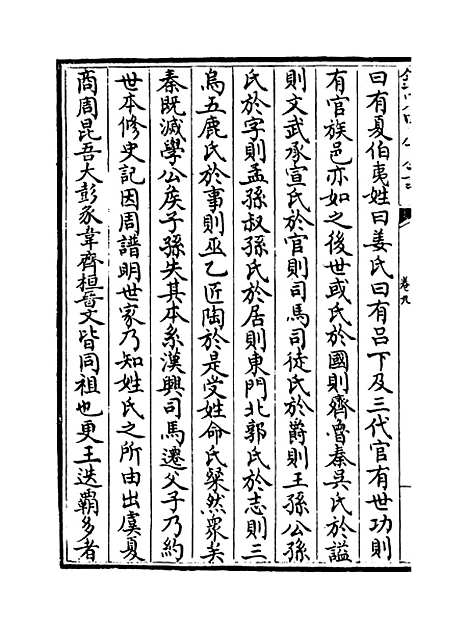 曰有夏伯夷姓曰姜氏曰有吕下及三代官有世功則
有官族邑亦如之後世或氏於國則齊魯秦吳氏於諡
則文武承宣氏於官則司馬司徒氏於爵則王孫公孫
氏於字則孟孫叔孫氏於居則東門北郭氏於志則三
烏五鹿氏於事則巫乙匠陶於是受姓命氏粲然衆矣
秦既滅學公侯子孫失其本系漢興司馬遷父子乃約
世本修史記因周譜明世家乃知姓氏之所由出虞夏
商周昆吾大彭豕韋齊桓晉文皆同祖也更王迭霸多者
卷九